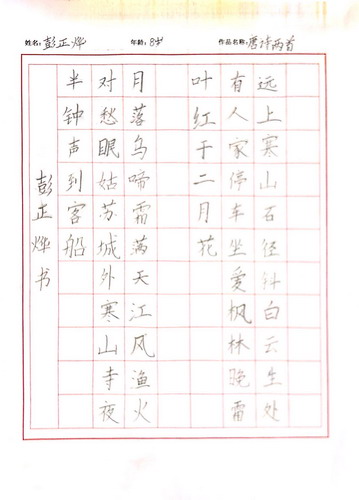 姓名:彭正烨 年龄:8岁 作品名称:唐诗两首
远上寒山石径斜白云生处
有人家停车坐爱枫林晚霜
叶红于二月花
月落乌啼霜满天江风渔火
对愁眠姑苏城外寒山寺夜
半钟声到客船
彭正烨书